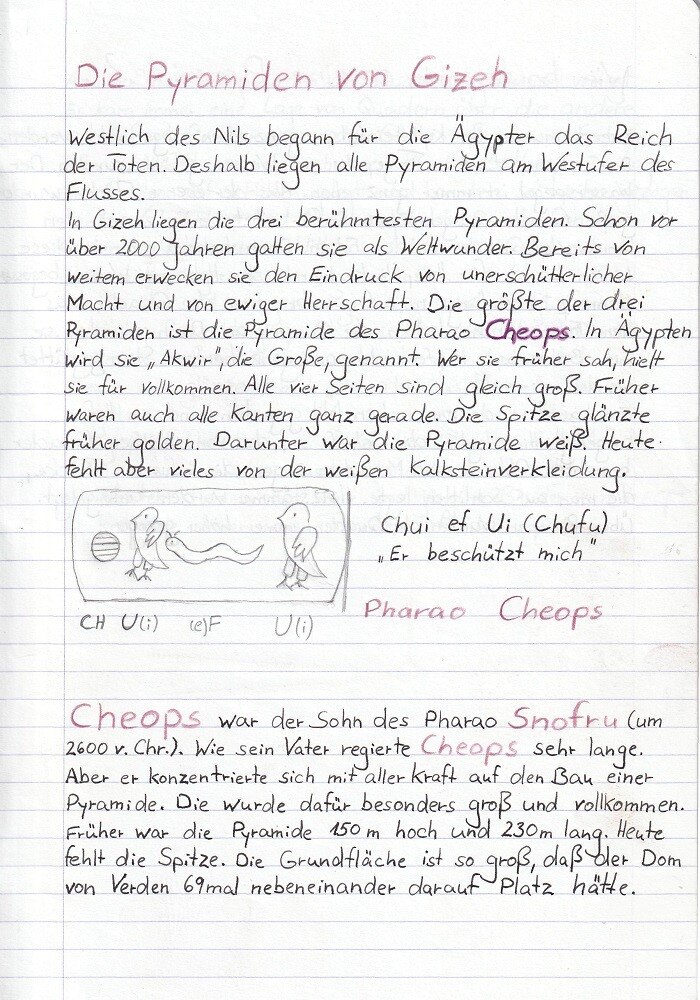 Die Pyramiden von Gizeh
Westlich des Nils begann für die Ägypter das Reich
der Toten. Deshalb liegen alle Pyramiden am Westufer des
Flusses.
In Gizeh liegen die drei berühmtesten Pyramiden. Schon vor
über 2000 Jahren galten sie als Weltwunder. Bereits von
weitem erwecken sie den Eindruck von unerschütterlicher
Macht und von ewiger Herrschaft. Die größte der drei
Pyramiden ist die Pyramide des Pharao Cheops. In Ägypten
wird sie „Akwir", die Große, genannt. Wer sie früher sah, hielt
sie für vollkommen. Alle vier Seiten sind gleich groß. Früher
waren auch alle Kanten ganz gerade. Die Spitze glänzte
früher golden. Darunter war die Pyramide weiß. Heute
fehlt aber vieles von der weißen Kalksteinverkleidung.
Chui ef Ui (Chufu)
„Er beschützt mich"
Pharao Cheops
CH U(i) (e)F U(i)
Cheops war der Sohn des Pharao Snofru (um
2600 v. Chr.). Wie sein Vater regierte Cheops sehr lange.
Aber er konzentrierte sich mit aller Kraft auf den Bau einer
Pyramide. Die wurde dafür besonders groß und vollkommen.
Früher war die Pyramide 150 m hoch und 230 m lang. Heute
fehlt die Spitze. Die Grundfläche ist so groß, daß der Dom
von Verden 69mal nebeneinander darauf Platz hätte.